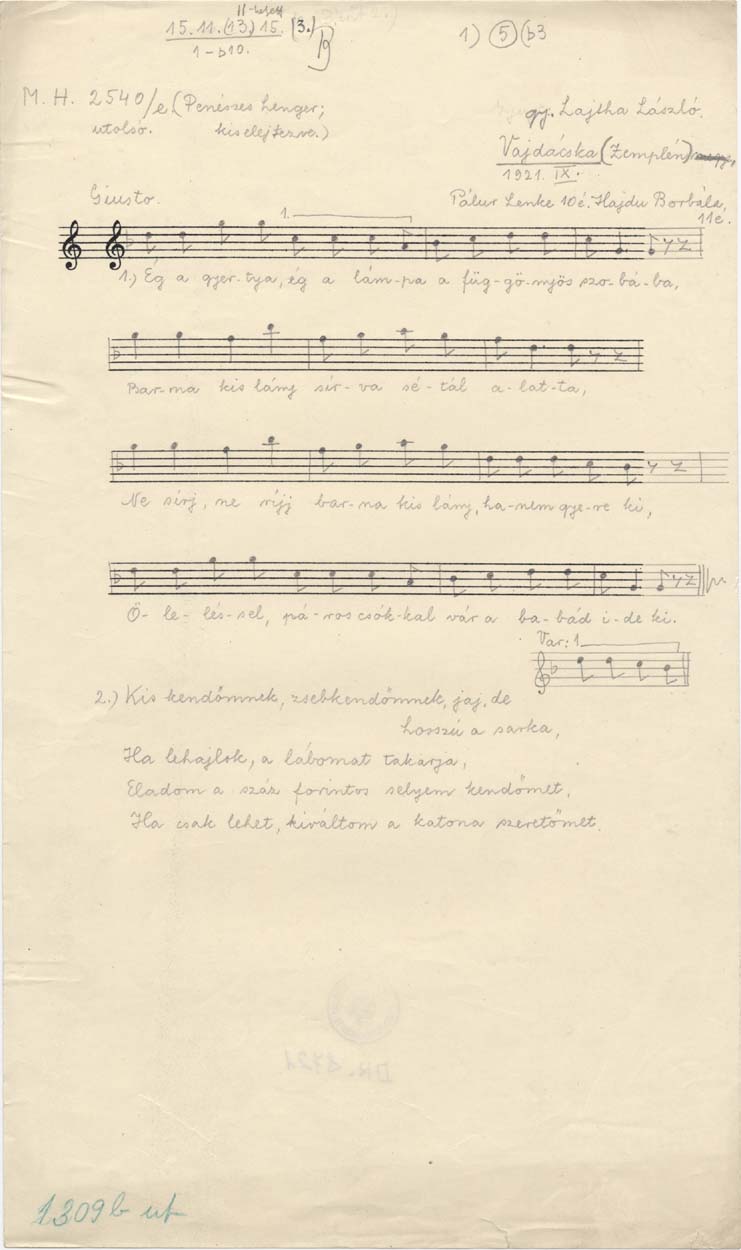 11-helyett
15. 11. (13) 15. (3.) B
1 – b10.
1) (5) (b3
M. H. 2540/e (Penészes henger;
utolsó. kis elejtezve.)
gy. Lajtha László.
Vajdácska (Zemplén) megye,
1921. IX.
Giusto.
Pálur Lenke 10é. Hajdu Borbála,
11é.
1.
1.) Ég a gyer-tya, ég a lám-pa a füg-gö-nyös szo-bá-ba,
Bar-na kis lány sír-va sé-tál a-lat-ta,
Ne sírj, ne ríjj bar-na kis lány, ha-nem gye-re ki,
Ö-le-lés-sel, pá-ros csók-kal vár a ba-bád i-de ki.
Var: 1.
2.) Kis kendőmnek, zsebkendőmnek, jaj, de
hosszú a sarka,
Ha lehajlok, a lábomat takarja,
Eladom a száz forintos selyem kendőmet,
Ha csak lehet, kiváltom a katona szeretőmet.
1309b ut